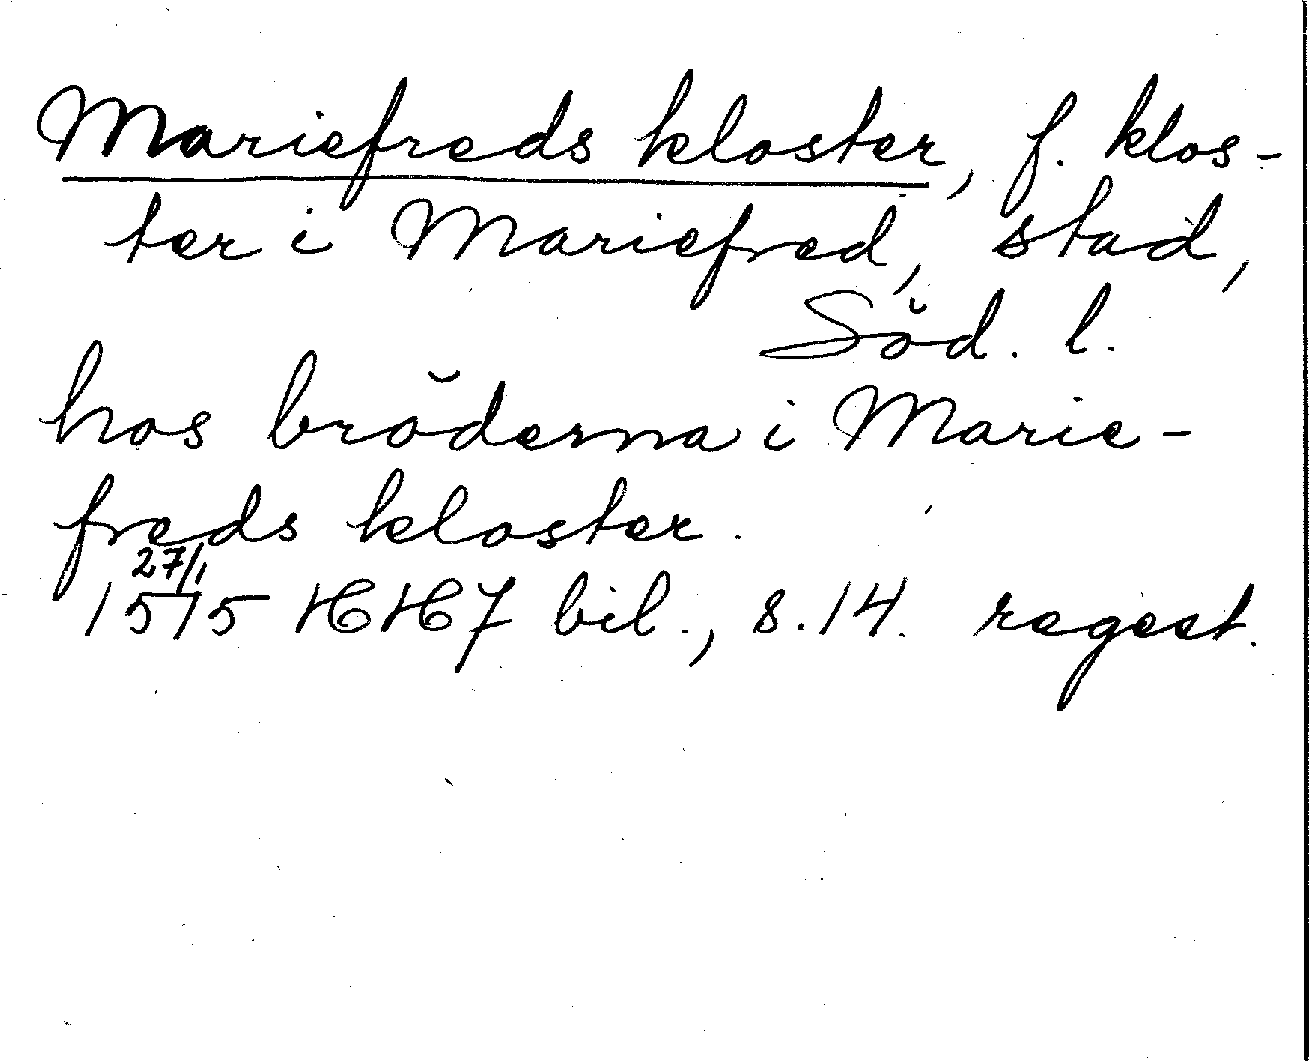 Mariefreds kloster, f. klos-
ter i Mariefred, stad,
Söd. l.
hos bröderna i Marie-
freds kloster.
27/1
1515 HH7 bil., s. 14. regest.